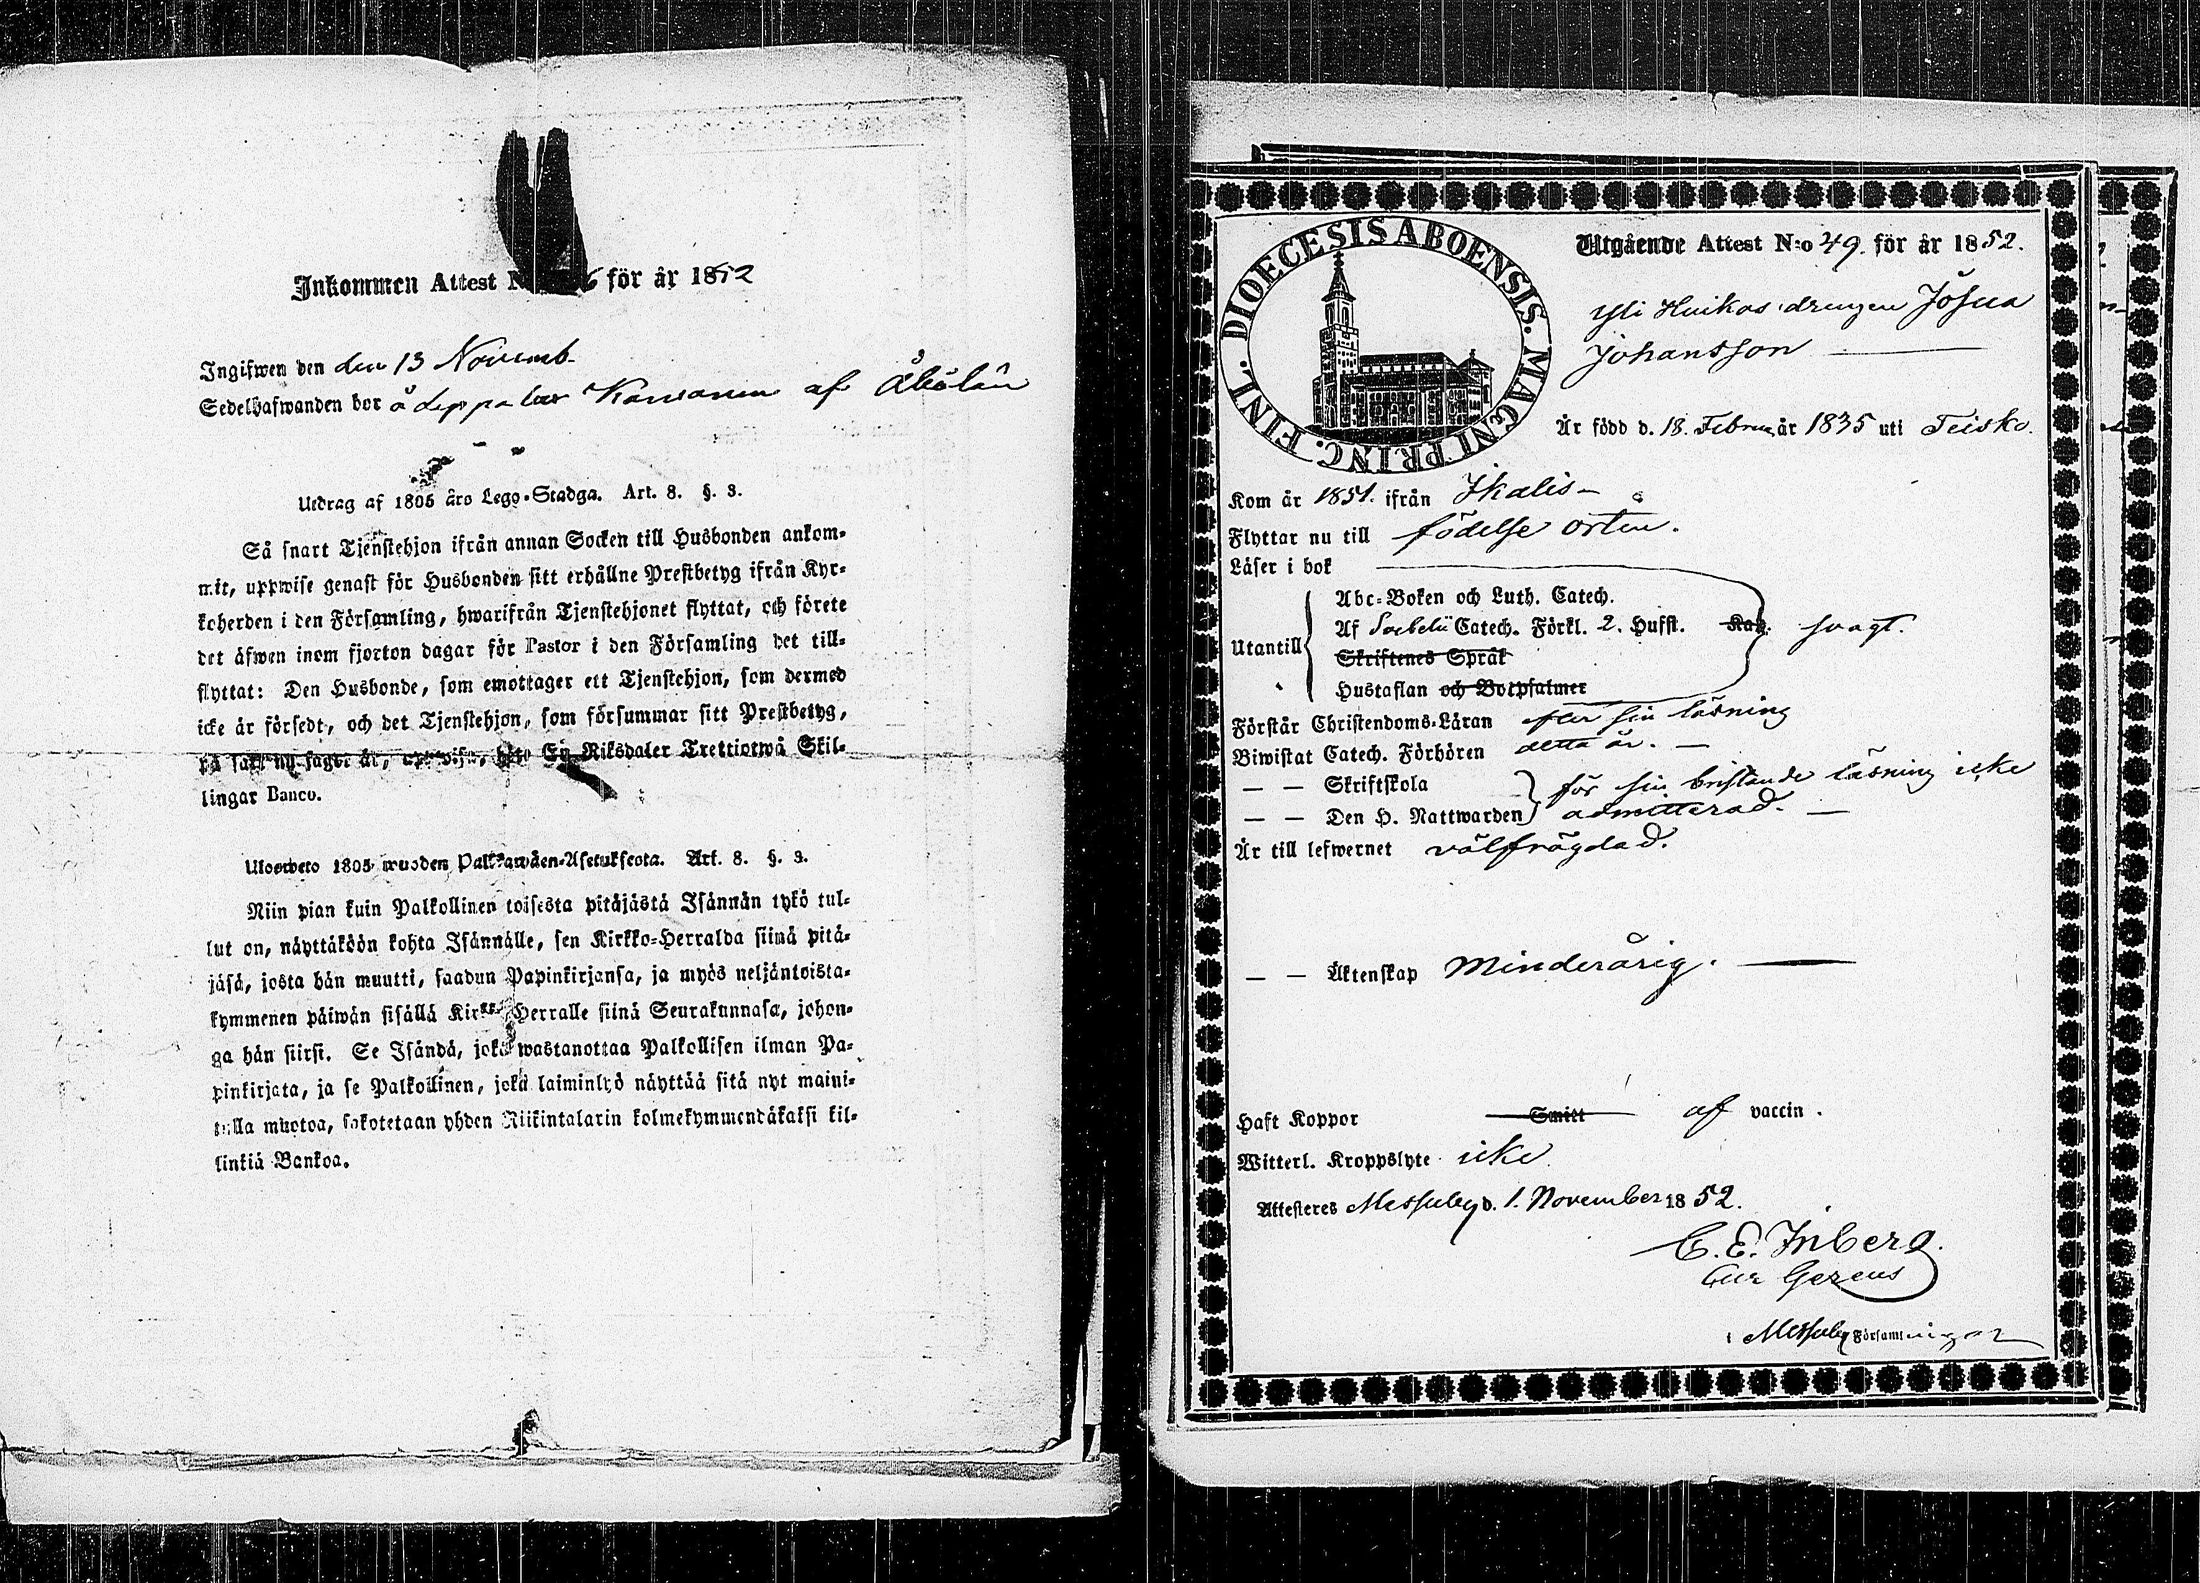 Inkommen Attest N 6 för år 1852
Ingifwen den den 13 Novemb.
Sedelhafwanden bor å af
Utdrag af 1805 års Lego-Stadga. Art. 8. §. 3.
Så snart Tjenstehjon ifrån annan Socken till Husbonden ankom-
mit, uppwise genast för Husbonden sitt erhållne Prestbetyg ifrån Kyr-
koherden i den Församling, hwarifrån Tjenstehjonet flyttat, och förete
det äfwen inom fjorton dagar för Pastor i den Församling det till-
flyttat: Den Husbonde, som emottager ett Tjenstehjon, som dermed
icke är försedt, och det Tjenstehjon, som försummar sitt Prestbetyg,
på sätt nu sagdt är, En Riksdaler Trettiotwå Skil-
lingar Banco.
Ulosweto 1805 wuoden Palkkawäen-Asetuksesta. Art. 8. §. 3.
Niin pian kuin Palkollinen toisesta pitäjästä Isännän tykö tul-
lut on, näyttäköön kohta Isännälle, sen Kirkko-Herralda siinä pitä-
jäsä, josta hän muutti, saadun Papinkirjansa, ja myös neljäntoista-
kymmenen päiwän sisällä Kirkko-Herralle siinä Seurakunnasa, johon-
ga hän siirsi. Se Isändä, joka wastanottaa Palkollisen ilman Pa-
pinkirjata, ja se Palkollinen, joka laiminlyö näyttää sitä nyt maini-
tulla muotoa, sakotetaan yhden Riikintalarin kolmekymmendäkaksi kil-
linkiä Bankoa.
DIOECESIS ABOENSIS. MAGNI PRINC. FINL.
Utgående Attest N:o 49. för år 1852.
Yli Huikas drengen Josua
Johansson
Är född d. 18. Februar år 1835 uti Teisko.
Kom år 1851. ifrån Ikalis
Flyttar nu till födelse orten.
Läser i bok
Utantill
Abc-Boken och Luth. Catech.
Af Svebelii Catech. Förkl. 2. Hufst. Kap. svagt.
Skriftenes Språk
Hustaflan och Botpsalmer
Förstår Christendoms-Läran efter sin läsning
Biwistat Catech. Förhören detta år.
— — Skriftskola för sin bristande läsning icke
— — Den H. Nattwarden admitterad.
Är till lefwernet välfrägdad.
— — Äktenskap Minderårig.
Haft Koppor Smitt af vaccin.
Witterl. Kroppslyte icke
Attesteres Messuby d. 1. November 1852.
C. E. Inberg.
Cur Gerens
i Messuby Församlingar